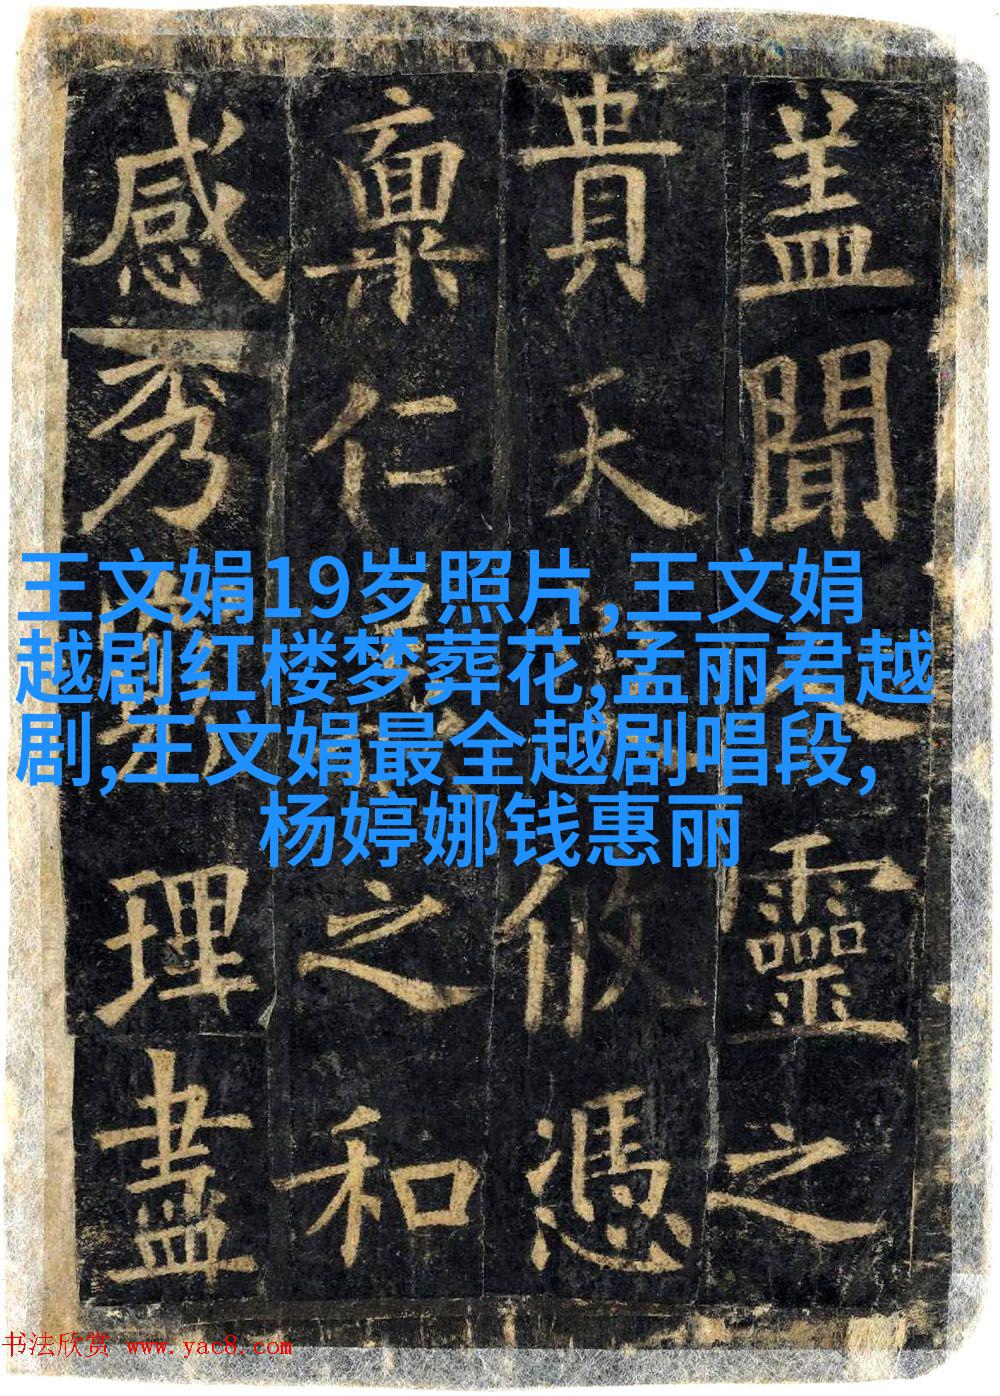 盖聞靈之
貴天攸憑
稟仁之和
感秀理盡
王文娟19岁照片,王文娟
越剧红楼梦葬花,孟丽君越
剧,王文娟最全越剧唱段,
杨婷娜钱惠丽
书法欣赏 www.yac8.com